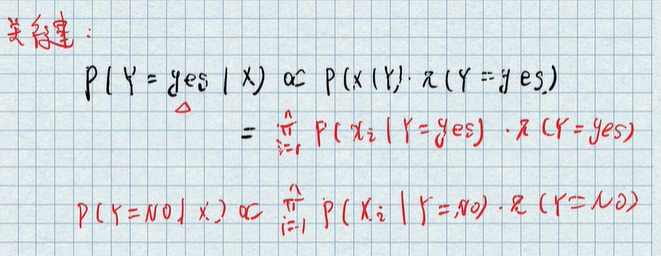 关键:
P(Y=yes|X) ∝ P(X|Y)·π(Y=yes)
= ∏_{i=1}^{n} P(x_i|Y=yes)·π(Y=yes)
P(Y=NO|X) ∝ ∏_{i=1}^{n} P(x_i|Y=NO)·π(Y=NO)